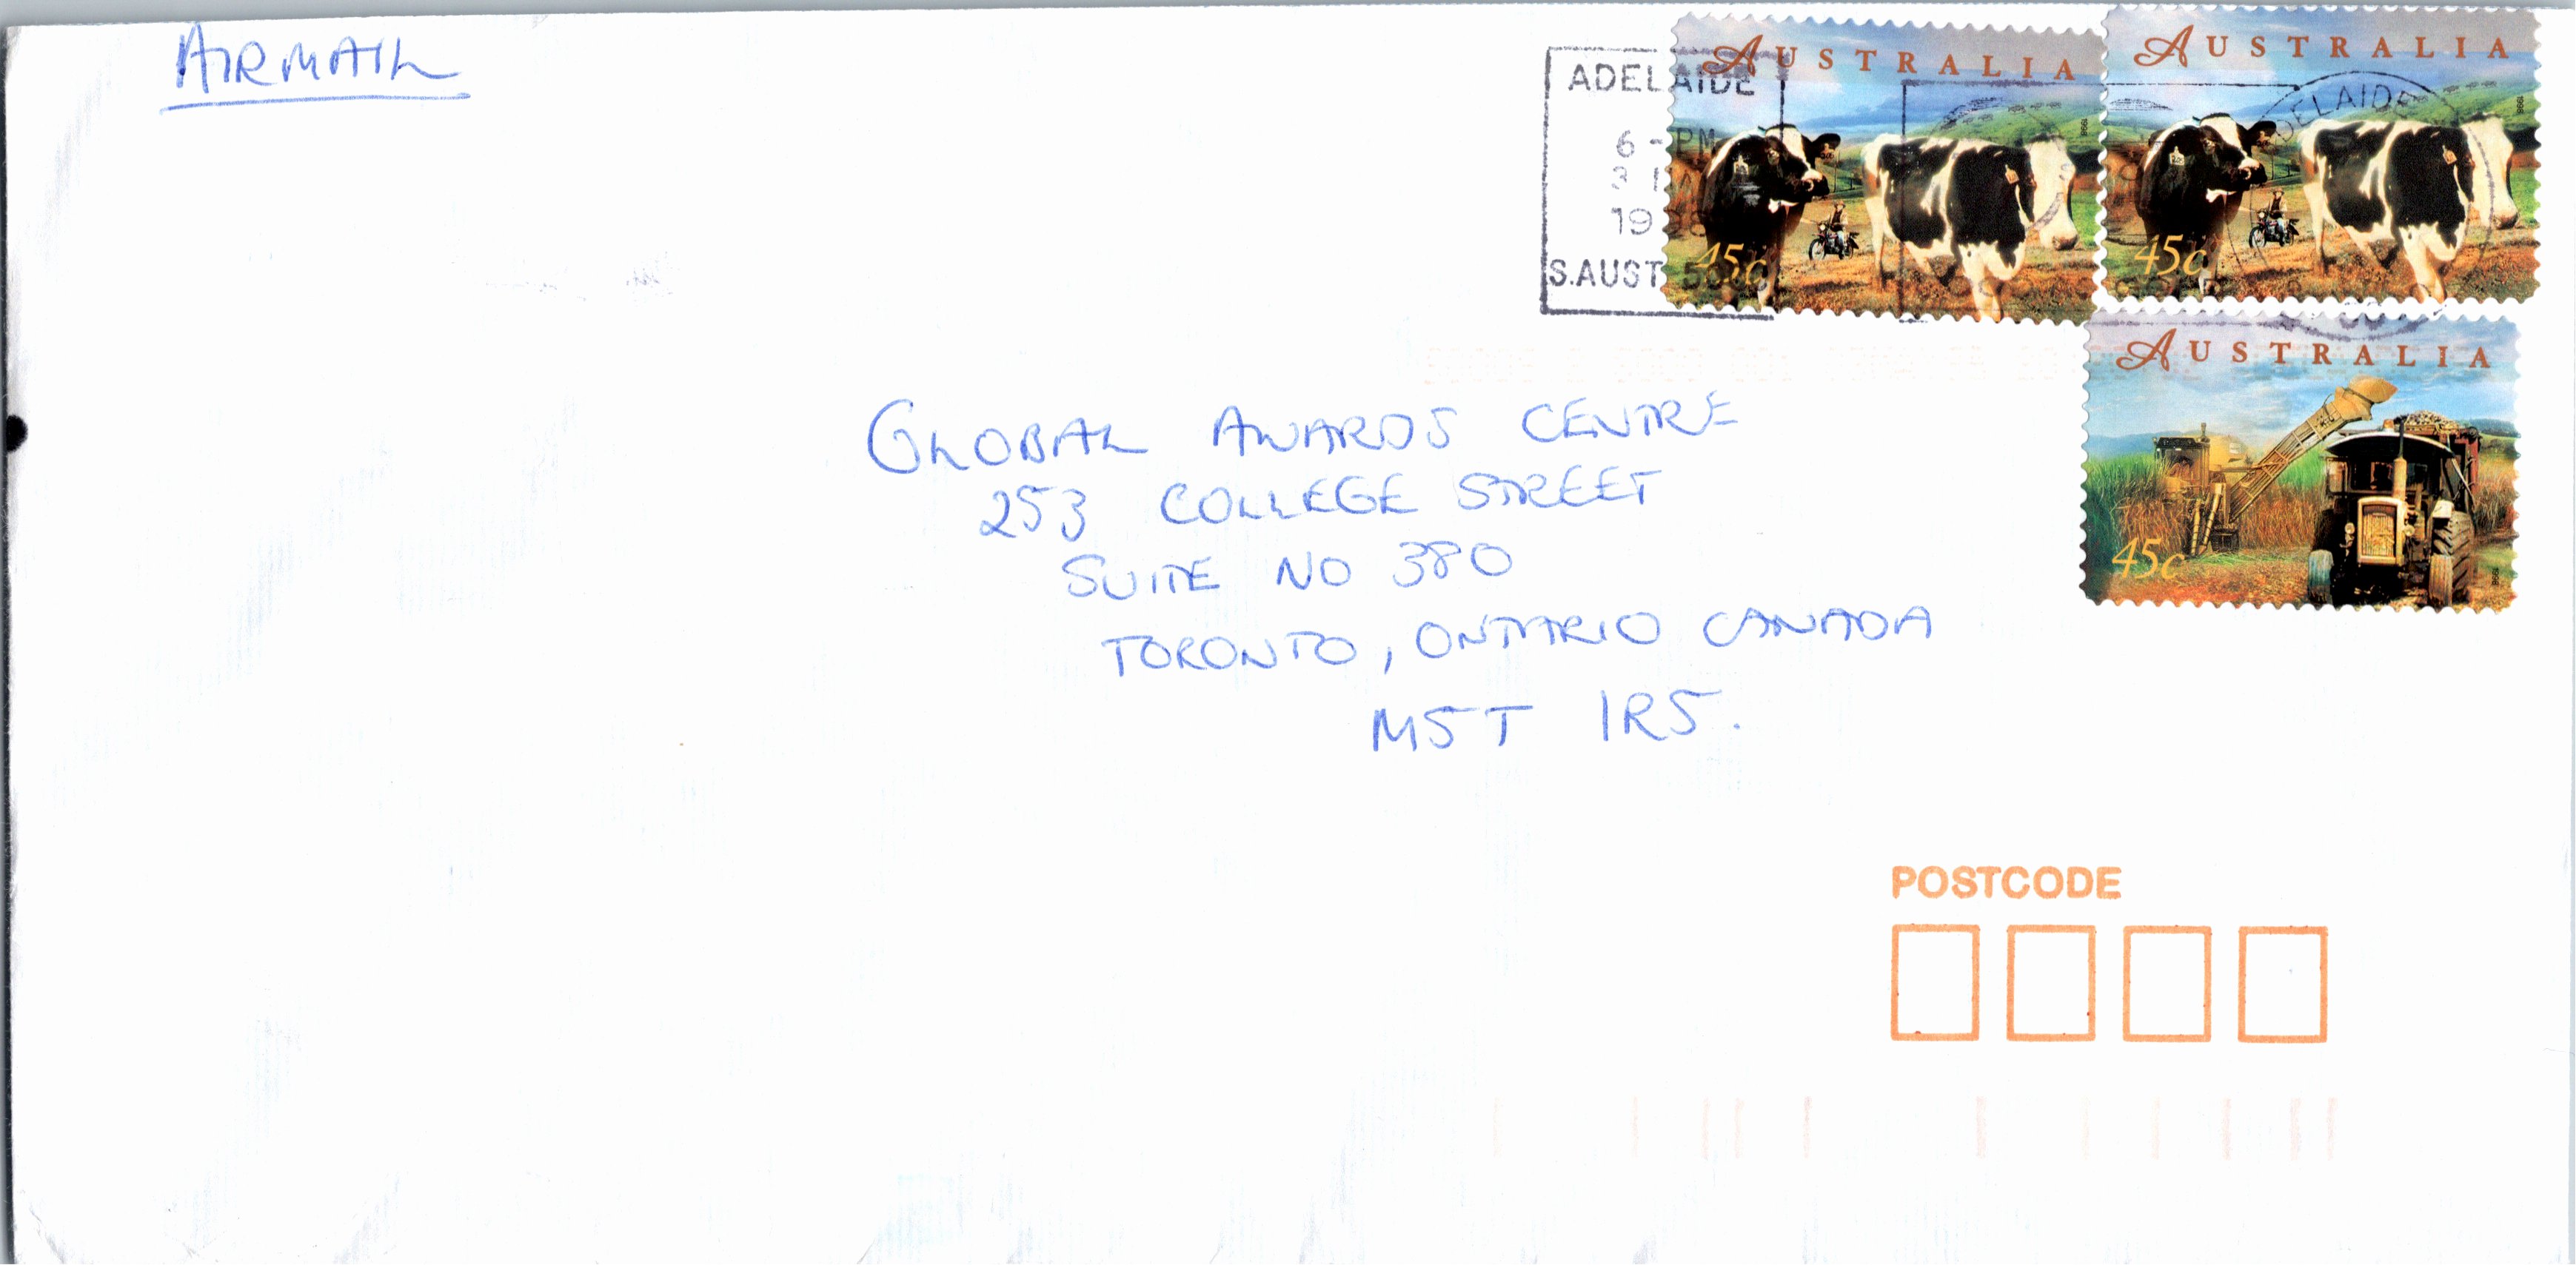 AIRMAIL
ADELAIDE
6 - PM
19
S.AUST. 50
AUSTRALIA
45c
1998
AUSTRALIA
45c
1998
ADELAIDE
AUSTRALIA
45c
1998
GLOBAL AWARDS CENTRE
253 COLLEGE STREET
SUITE NO 380
TORONTO, ONTARIO CANADA
M5T 1R5.
POSTCODE